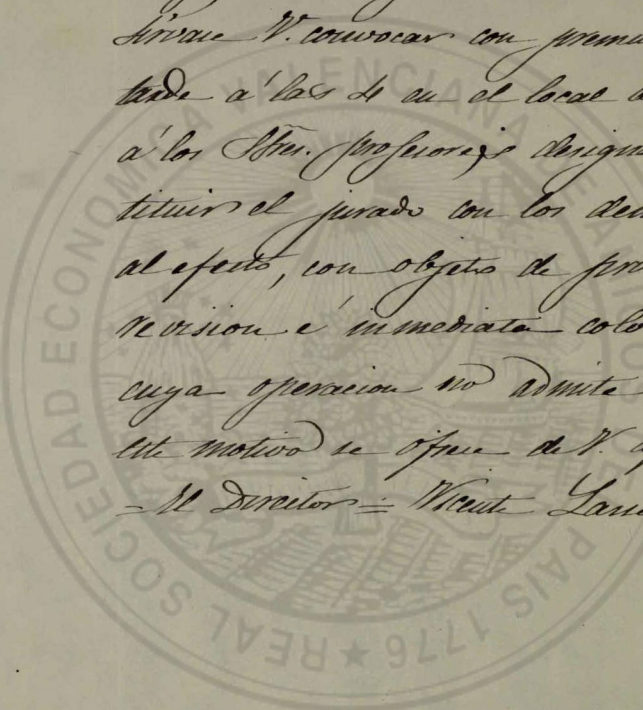 Sírvase V. convocar con premu
tarde a' las 4 en el local
á los Sres. profesores design
tituir el jurado con los de
al efecto, con objeto de pro
revision é inmediata colo
cuya operacion no admite
este motivo se ofrece de V.
= El Director = Vicente
REAL SOCIEDAD ECONOMICA VALENCIANA DE AMIGOS PAIS 1776